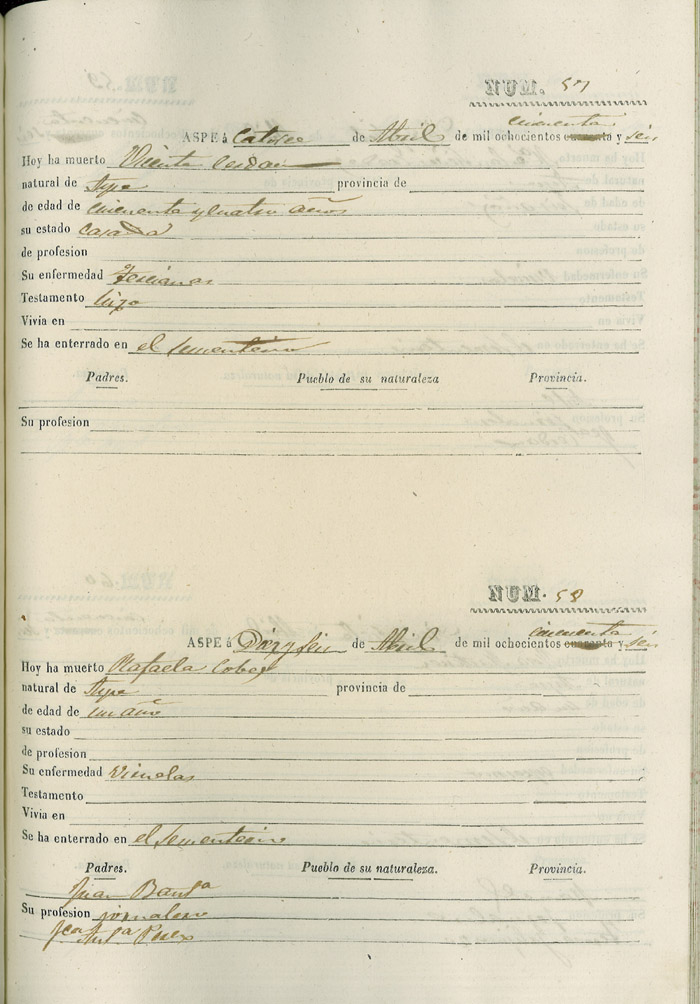 NUM. 57
cincuenta
ASPE á Catorce de Abril de mil ochocientos cuarenta y seis
Hoy ha muerto Vicenta Cerdan
natural de Aspe provincia de
de edad de cincuenta y cuatro años
su estado casada
de profesion
Su enfermedad
Testamento hizo
Vivia en
Se ha enterrado en el sementerio
Padres. Pueblo de su naturaleza Provincia.
Su profesion
NUM. 58
cincuenta
ASPE á Diez y seis de Abril de mil ochocientos cuarenta y seis
Hoy ha muerto Rafaela
natural de Aspe provincia de
de edad de un año
su estado
de profesion
Su enfermedad Viruelas
Testamento
Vivia en
Se ha enterrado en el sementerio
Padres. Pueblo de su naturaleza. Provincia.
Juan Baut.a
Su profesion jornalero